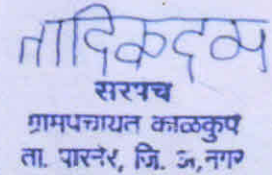 सरपंच
ग्रामपंचायत काळकुप
ता. पारनेर, जि. अ,नगर